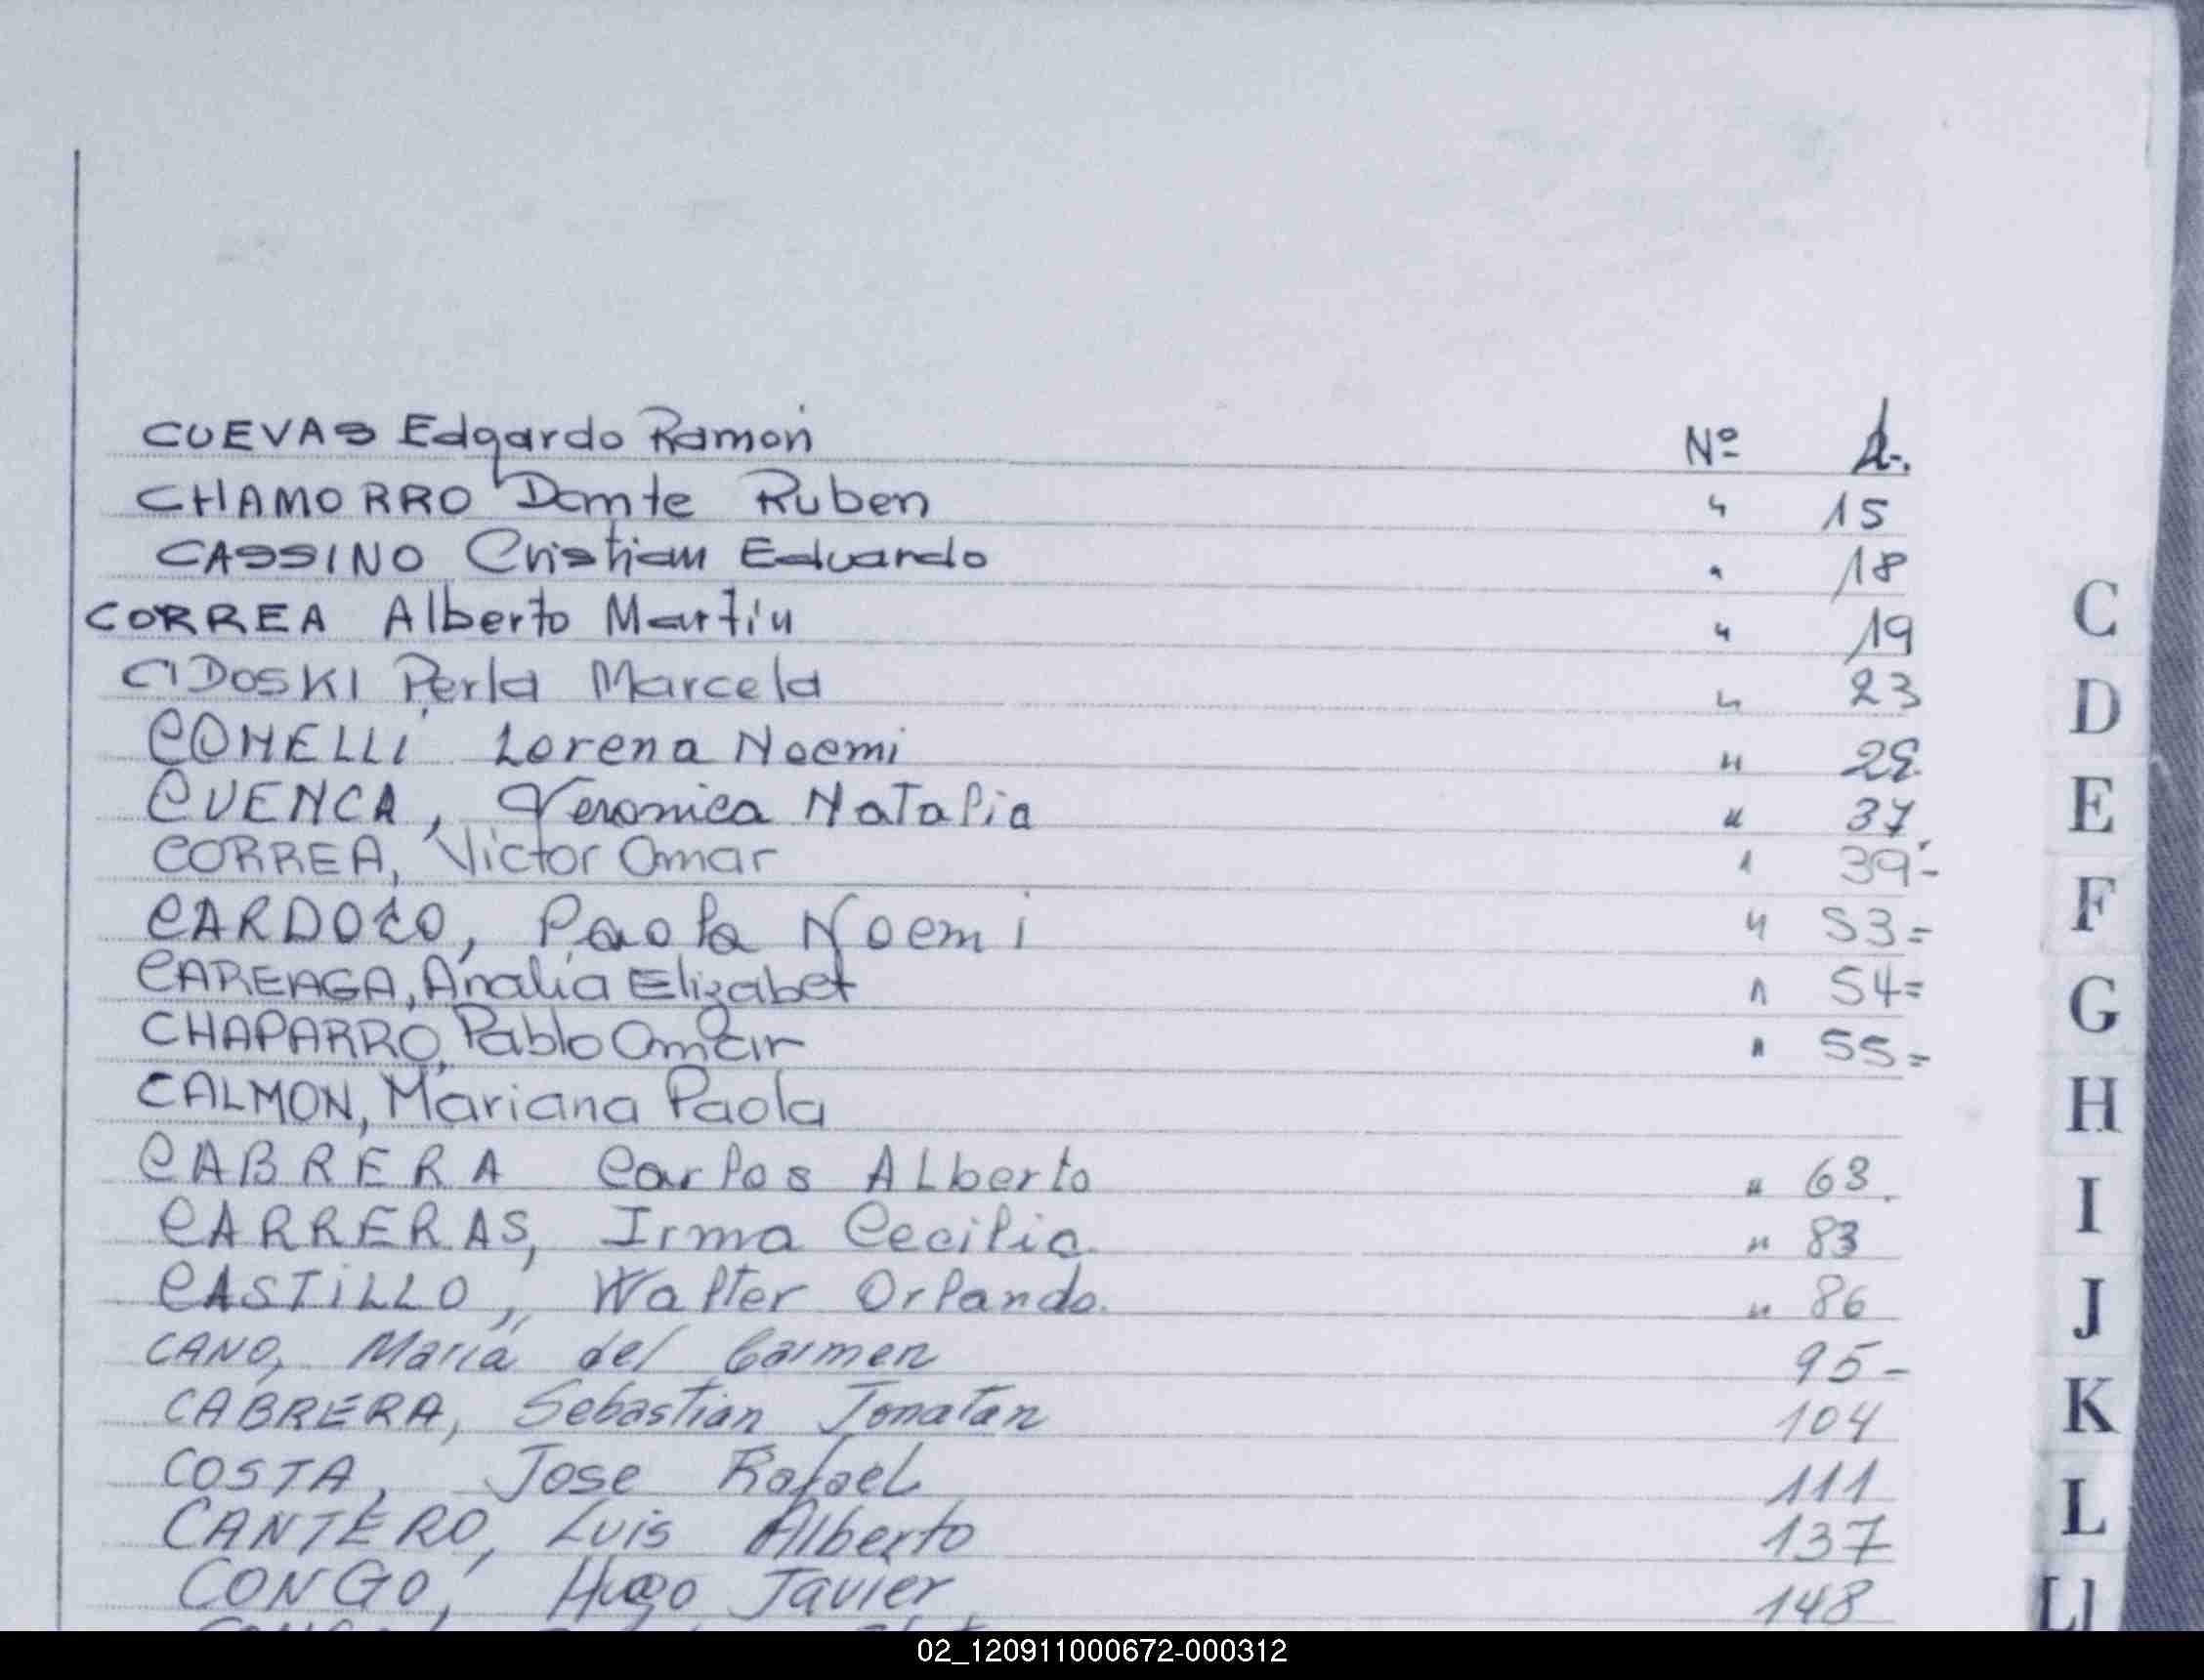 CUEVAS Edgardo Ramón Nº 2-.
CHAMORRO Damte Ruben " 15
CASSINO Cristian Eduardo " 18
CORREA Alberto Martin " 19
CIDOSKI Perla Marcela " 23
COMELLI Lorena Noemi " 29
CUENCA, Veronica Natalia " 37
CORREA, Victor Omar " 39-
CARDOZO, Paola Noemi " 53=
CAREAGA, Analía Elizabet " 54=
CHAPARRO, Pablo Omar " 55=
CALMON, Mariana Paola
CABRERA Carlos ALberto " 63.
CARRERAS, Irma Cecilia " 83
CASTiLLO, Walter Orlando. " 86
CANO, María del Carmen 95-
CABRERA, Sebastian Jonatan 104
COSTA, Jose Rafael 111
CANTERO, Luis Alberto 137
CONGO, Hugo Javier 148
C
D
E
F
G
H
I
J
K
L
Ll
02_120911000672-000312